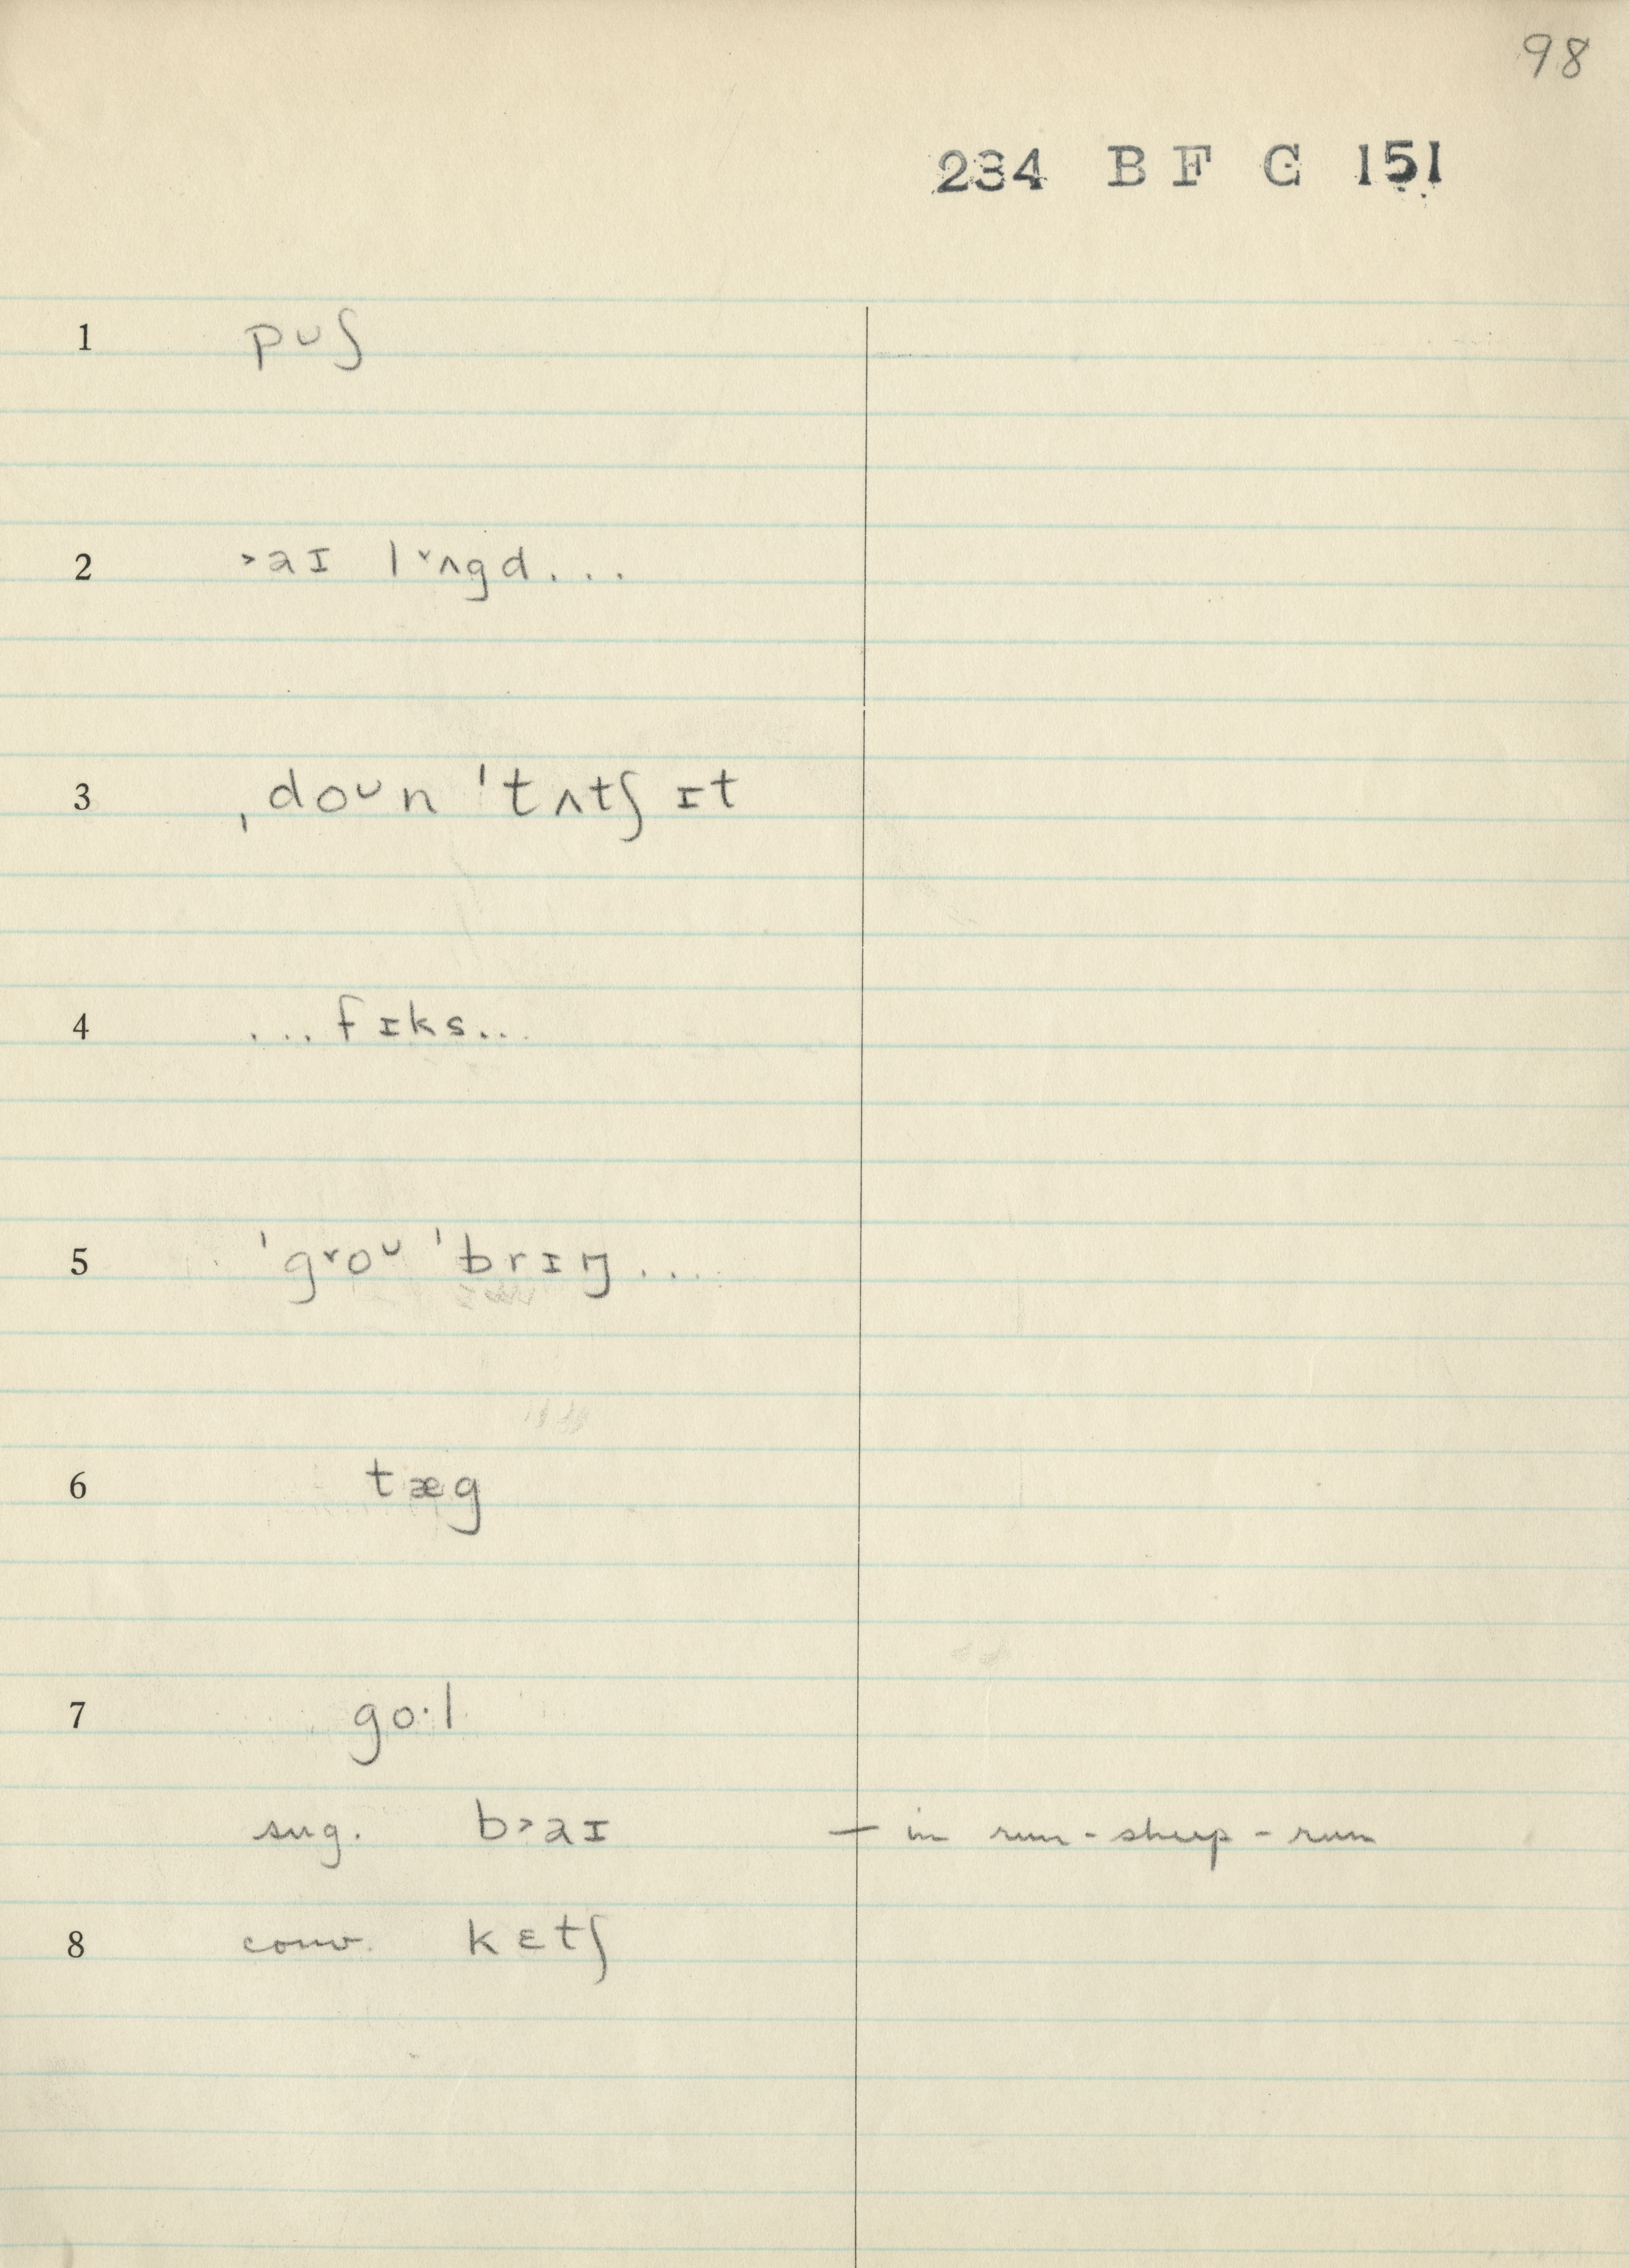 98
234 B F G 151
1 pʊʃ
2 ˃aɪ l˅ʌgd...
3 ˌdoᴜn ˈtʌtʃ ɪt
4 ...fɪks...
5 ˈg˅oᴜ ˈbrɪŋ....
6 tæg
7 go·l
sug. b˃aɪ — in run-sheep-run
8 conv. kɛtʃ